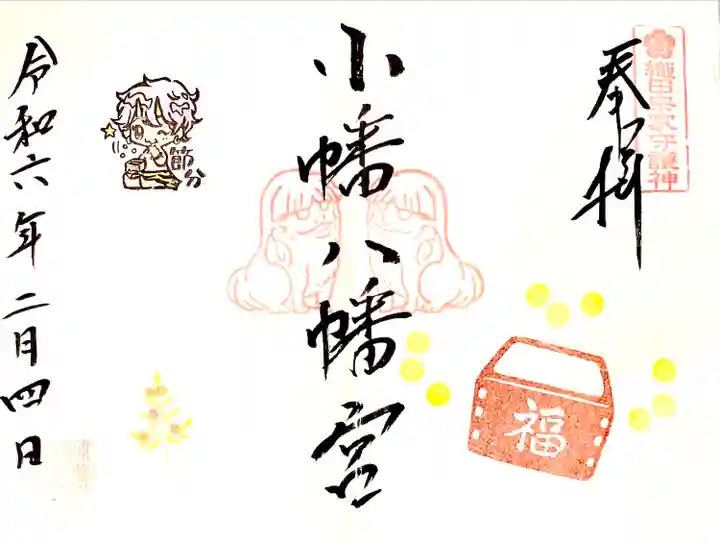 奉拝
織田宗家守護神
小幡八幡宮
福
節分
令和六年二月四日